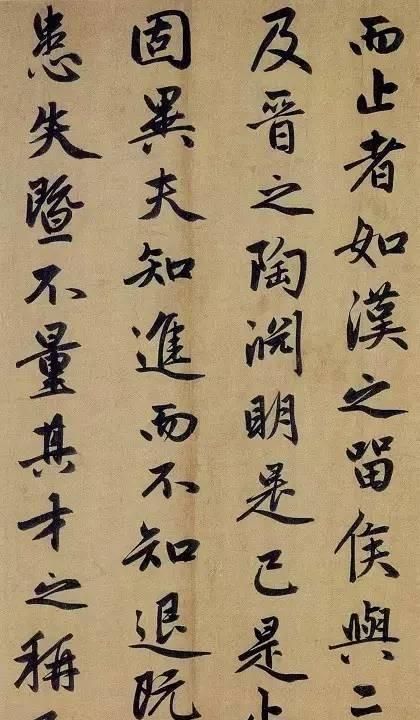 而止者如漢之留侯與二
及晉之陶淵明是已是
固異夫知進而不知退
患失暨不量其才之稱